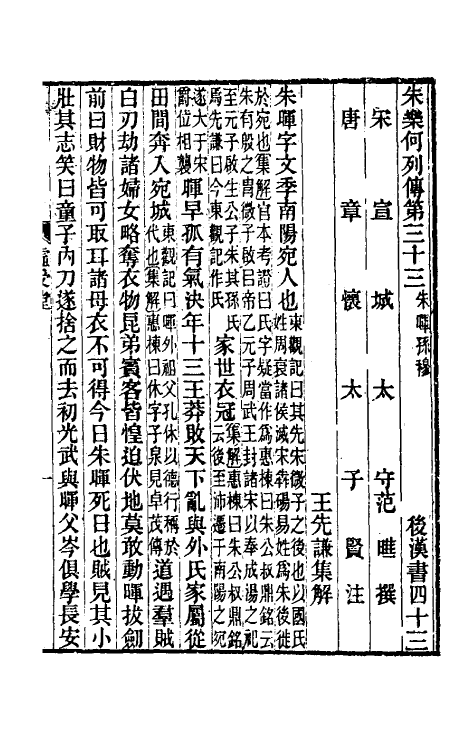 朱樂何列傳第三十三 朱暉孫穆 後漢書四十三
宋宣城太守范曄撰
唐章懷太子賢注
王先謙集解
朱暉字文季南陽宛人也東觀記曰其先宋微子之後也以國氏
姓周衰諸侯滅宋犇碭易姓爲朱後徙
於宛也集解官本考證曰氏字疑當作爲惠棟曰朱公叔鼎銘云
朱有殷之胄微子啟呂帝乙元子周武王封諸宋以奉成湯之祀
至元子啟生公子朱其孫氏
焉先謙曰今東觀記作氏家世衣冠集解惠棟曰朱公叔鼎銘
云後至沛遷于南陽之宛
遂大于宋
爵位相襲暉早孤有氣決年十三王莽敗天下亂與外氏家屬從
田間奔入宛城東觀記曰暉外祖父孔休以德行稱於
代也集解惠棟曰休字子泉見卓茂傳道遇羣賊
白刃劫諸婦女略奪衣物昆弟賓客皆惶迫伏地莫敢動暉拔劒
前曰財物皆可取耳諸母衣不可得今日朱暉死日也賊見其小
壯其志笑曰童子內刀遂捨之而去初光武與暉父岑俱學長安
一